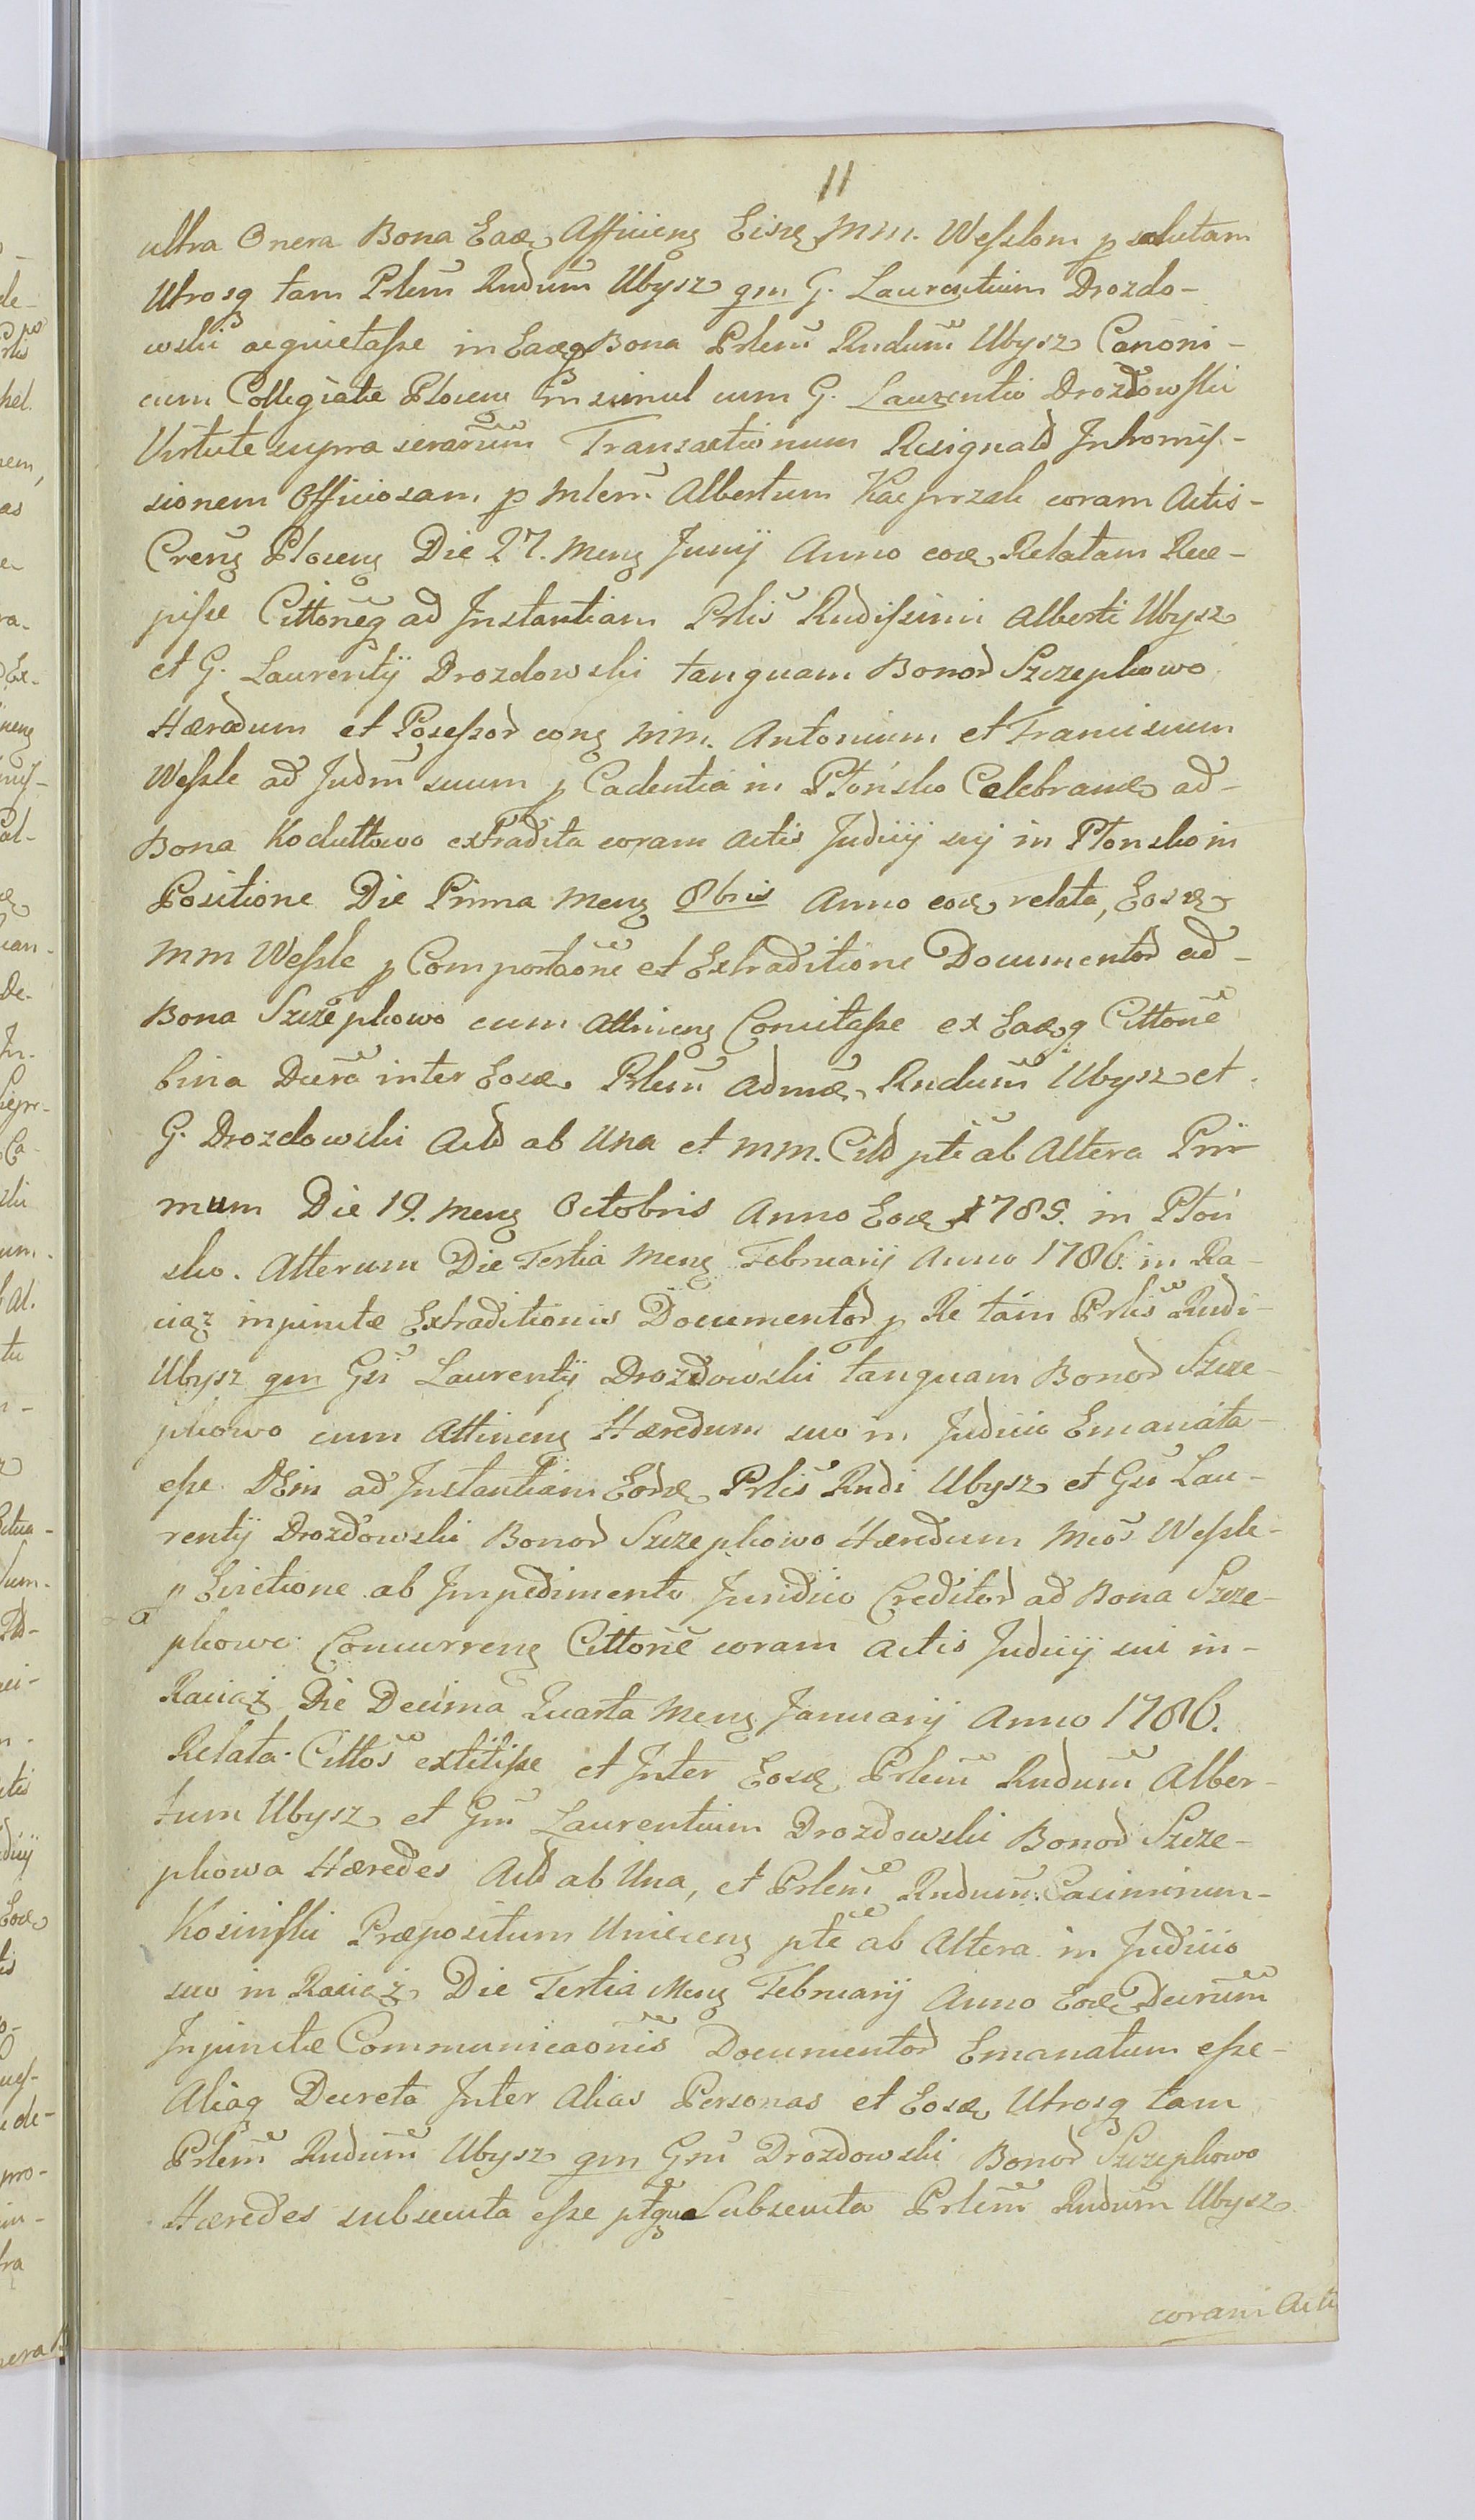 11
ultra Onera Bona Eadē Afficieng Eisdē MM. Wesslom p solutam
Utrosq tam Prlem Rndum Ubysz qm G. Laurentium Drozdo-
wski acquietasse in Eaeq Bona Prlem Rndum Ubysz Canoni-
cum Collegiatæ Ploceng insimul cum G. Laurentio Drozdowski
Virtute supra Transactionum Resignatd Intromis-
sionem Officiosam p Mlem Albertum Kacprzak coram Actis-
Creng Ploceng Die 27. Meng Junij Anno eodē Relatam Rece-
pisse Cittoneq ad Instantiam Prlis Rudissimi Alberti Ubysz
et G. Laurentij Drozdowski tanquam Bonod Szczepkowo
Hæredum et Possessod cong MM. Antonium et Franciscum
Wessle ad Judm suum p Cadentia in Płońsko Celebrand ad-
Bona Koduttowo extradita coram Actis Judicij sui in Płonsko in
Positione Die Prima Meng 8bris Anno eodē relata, Eosdē
MM Wessle p Comportaōne et Extraditione Documentod ad-
Bona Szczepkowo cum Attineng Concitasse ex Eaeq Cittone
bina Decra inter Eosdē Prlem Admē Rndum Ubysz et
G. Drozdowski Actd ab Una et MM. Citd pte ab Altera Pri-
mum Die 19. Meng Octobris Anno Eodē 1785. in Płoń
sko. Alterum Die Tertia Meng Februarij Anno 1786. in Ra-
ciąz injunctæ Extraditionis Documentod p Re tam Prlis Rudi-
Ubysz qm Gsi Laurentij Drozdowski tanquam Bonod Szcze-
pkowo cum Attineng Hæredum suo in Judicio Emanata-
esse DEin ad Instantiam Eodē Prlis Rndi Ubysz et Gsi Lau-
rentij Drozdowski Bonod Szczepkowo Hæredum Mcos Wessle-
p Evictione ab Impedimento Juridico Creditod ad Bona Szcze-
pkowo Concurreng Cittone coram Actis Judicij sui in-
Raciąż Die Decima Quarta Meng Januarij Anno 1786.
Relata Cittos extitisse et Inter Eosdē Prlem Rndum Alber-
tum Ubysz et Gm Laurentium Drozdowski Bonod Szcze-
pkowa Hæredes Actd ab Una, et Prlem Rndum Casimirum-
Kosinski Præpositum Unieceng pte ab Altera in Judicio
suo in Raciąż Die Tertia Meng Februarij Anno Eodē Decrum
Injunctæ Communicaōnis Documentod Emanatum esse-
Aliaq Decreta Inter Alias Personas et Eosdē Utrosq tam
Prlem Rndum Ubysz qm Gm Drozdowski Bonod Szczepkowo
Hæredes subsecuta esse ptqua Subsecuta Prlem Rndum Ubysz
coram Acti